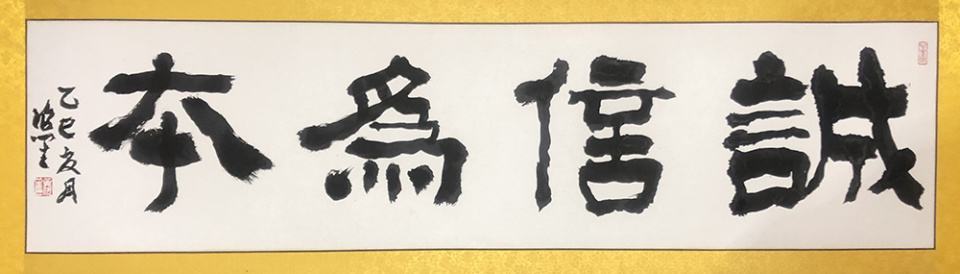 誠信為本
乙巳亥月